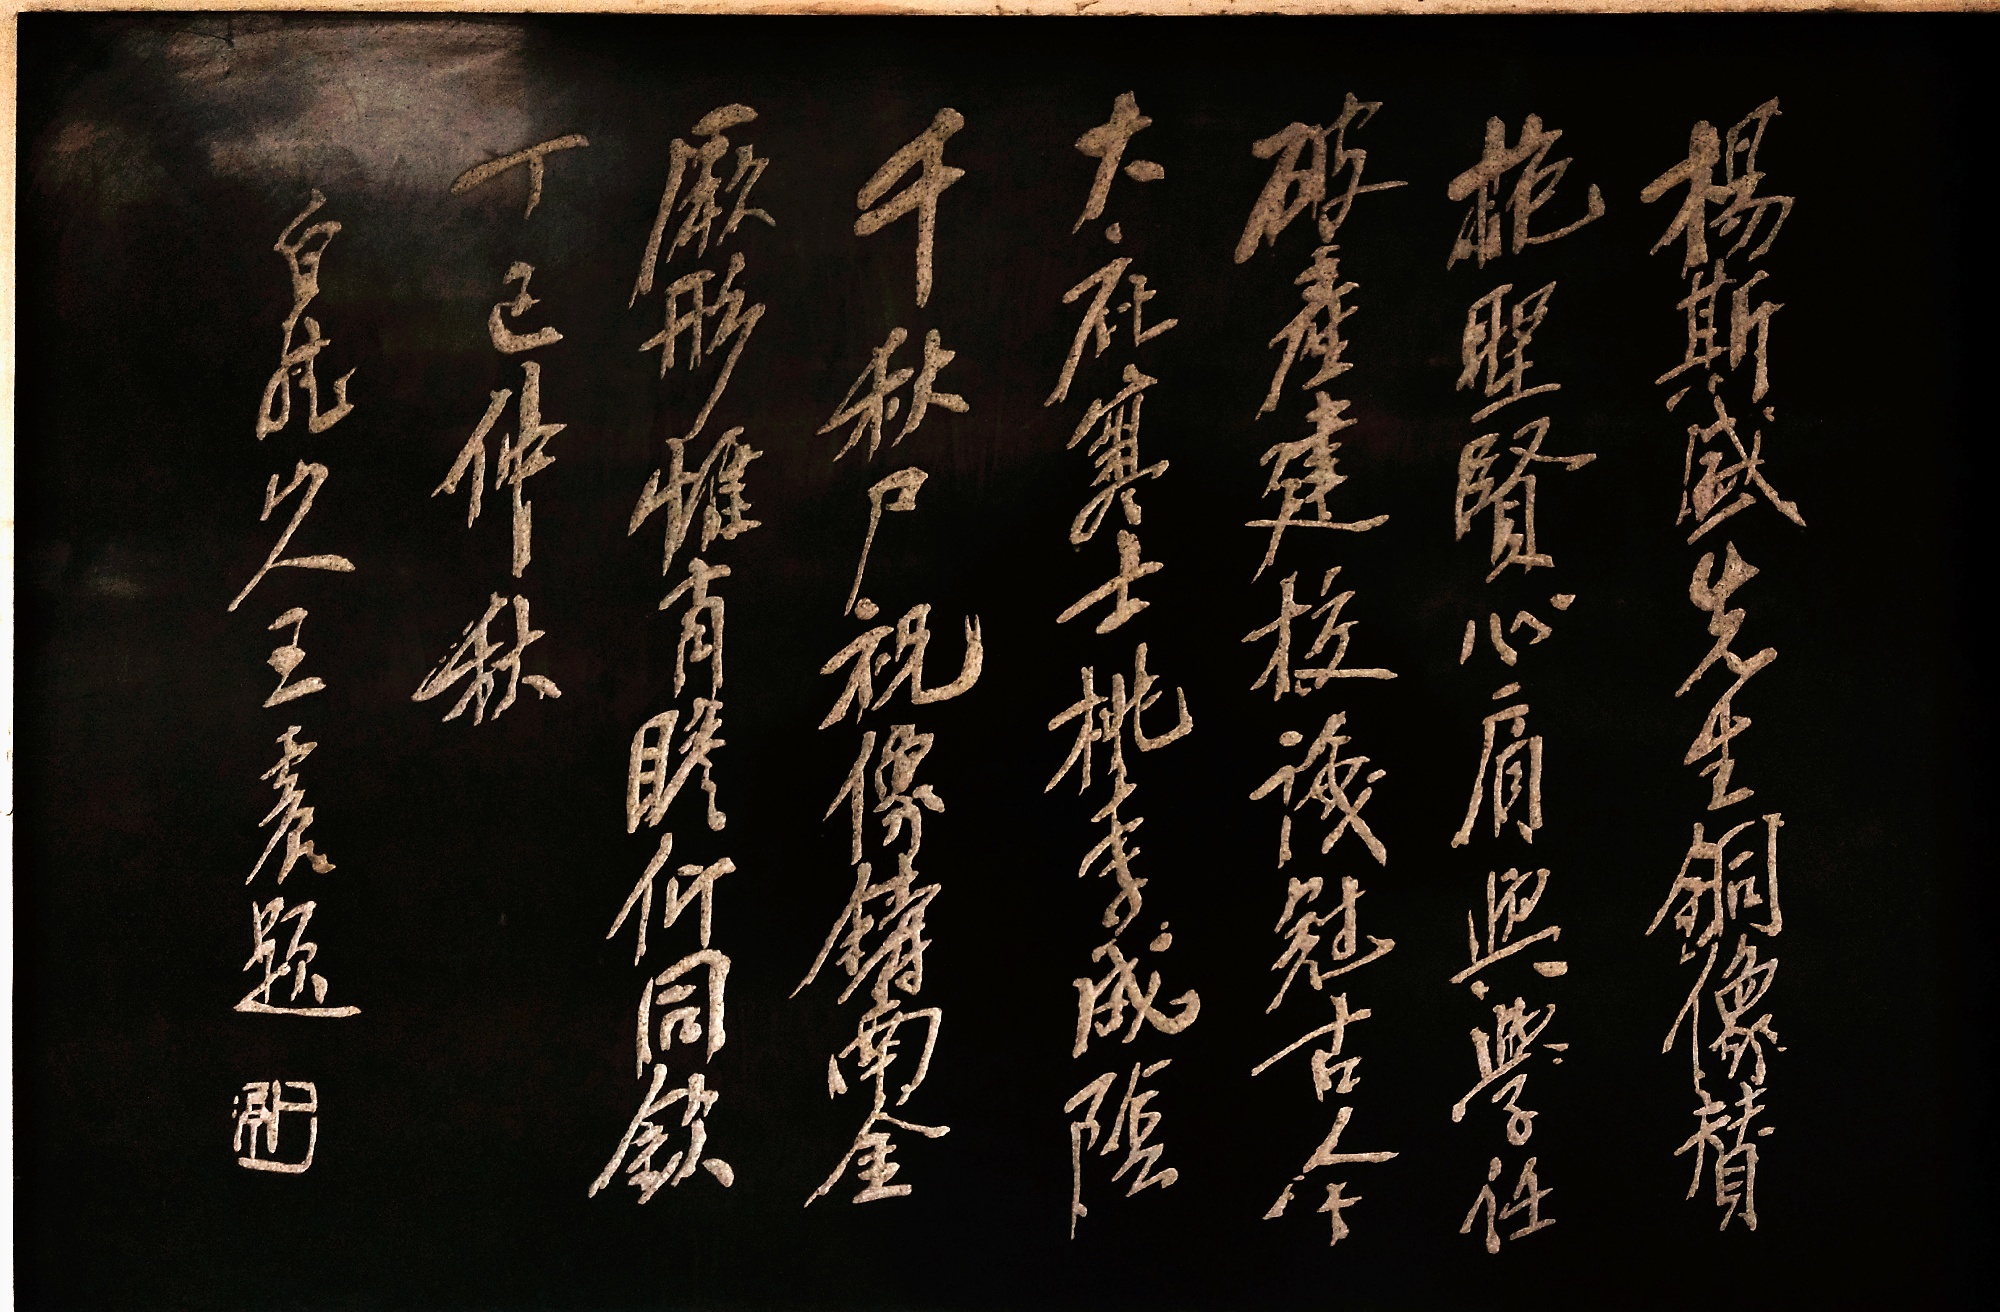 楊斯盛先生銅像贊
抱聖賢心肩興學任
破產建校識冠古今
大庇寒士桃李成陰
千秋尸祝像鑄南金
厥形惟肖瞻仰同欽
丁巳仲秋
白龍山人王震題